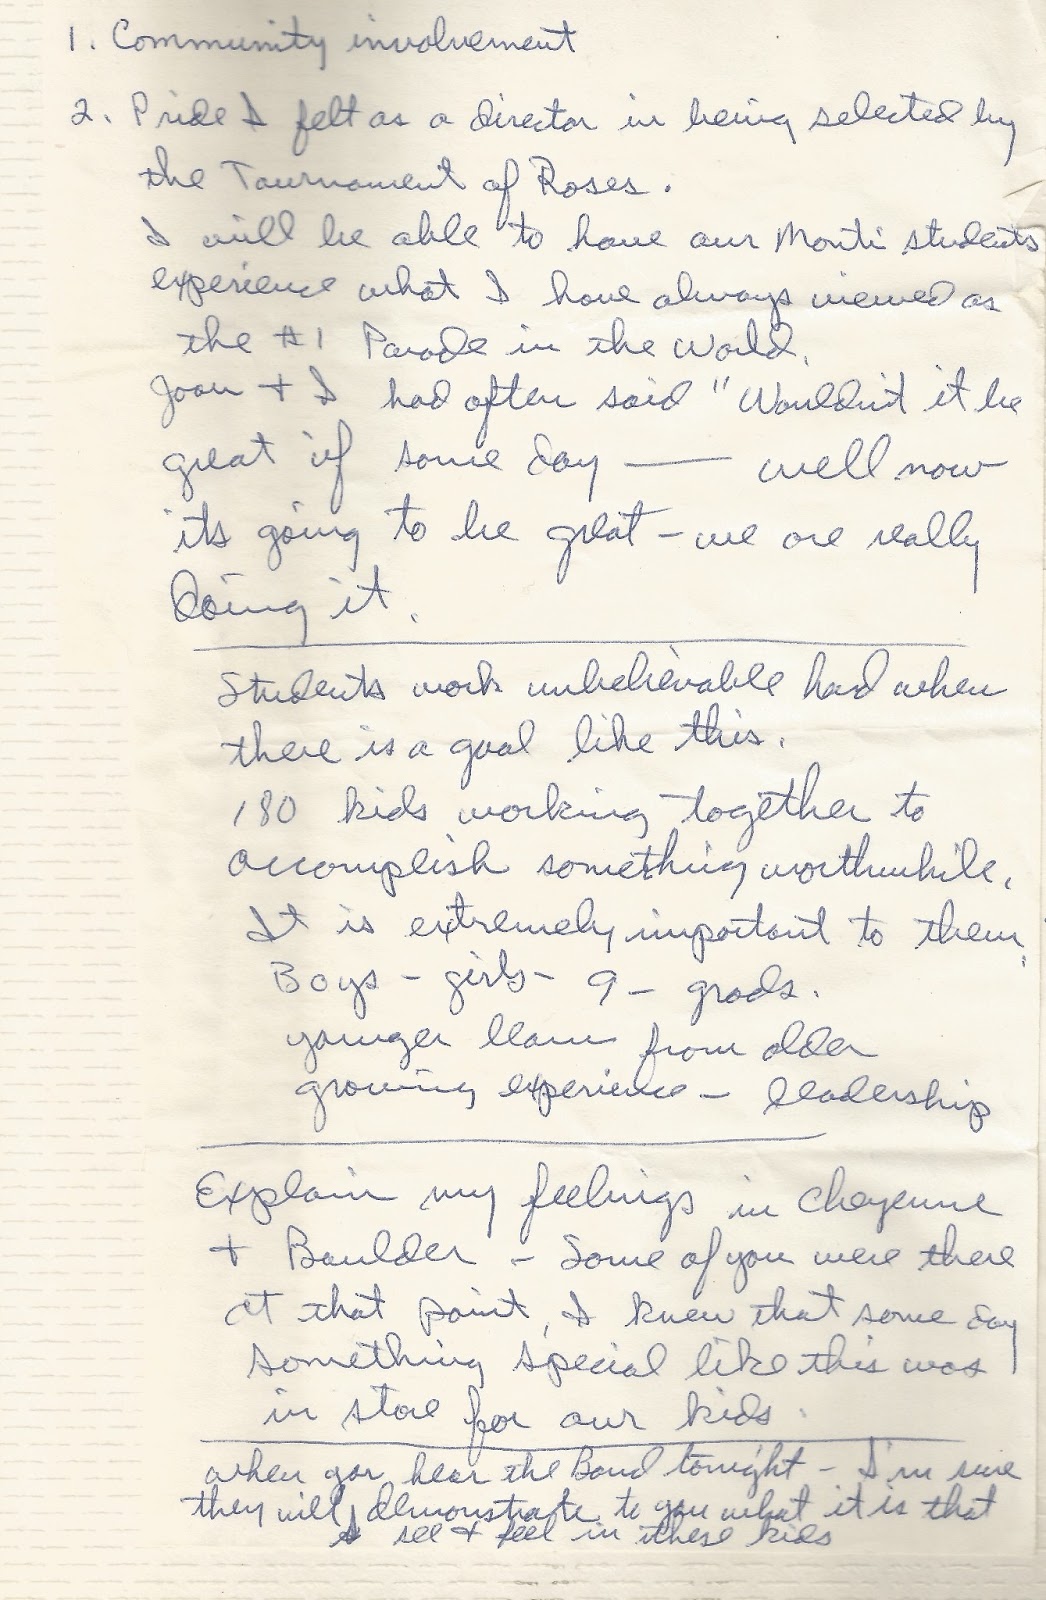 1. Community involvement
2. Pride I felt as a director in being selected by
the Tournament of Roses.
I will be able to have our Monti students
experience what I have always viewed as
the #1 Parade in the World.
Joan + I had often said "Wouldn't it be
great if some day — well now
it's going to be great - we are really
doing it.
Students work unbelievable hard when
there is a goal like this.
180 kids working together to
accomplish something worthwhile.
It is extremely important to them.
Boys - girls - 9 - grads.
younger learn from older
growing experience - leadership
Explain my feelings in Cheyenne
+ Boulder - Some of you were there
at that point, I knew that some day
something special like this was
in store for our kids.
when you hear the Band tonight - I'm sure
they will demonstrate to you what it is that
I see + feel in these kids